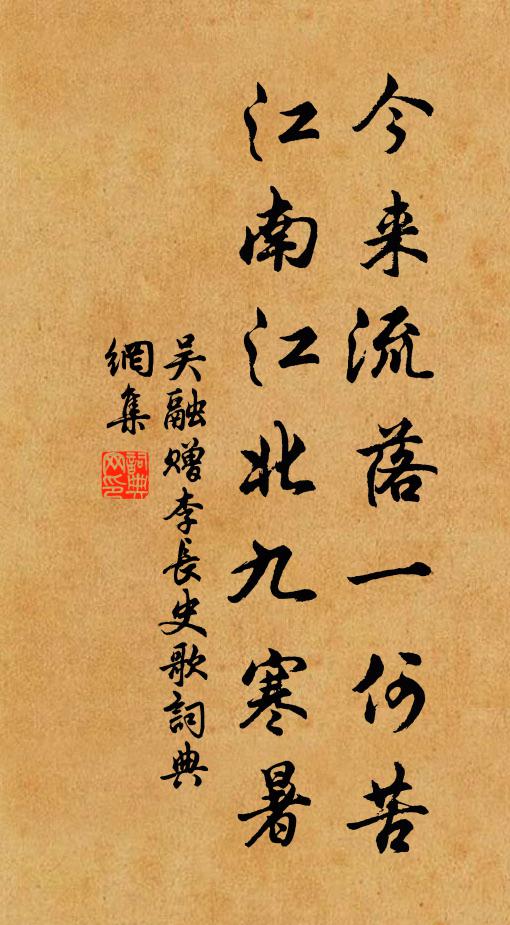 今来流落一何苦
江南江北九寒暑
吴融赠李長史歌詞典
網集